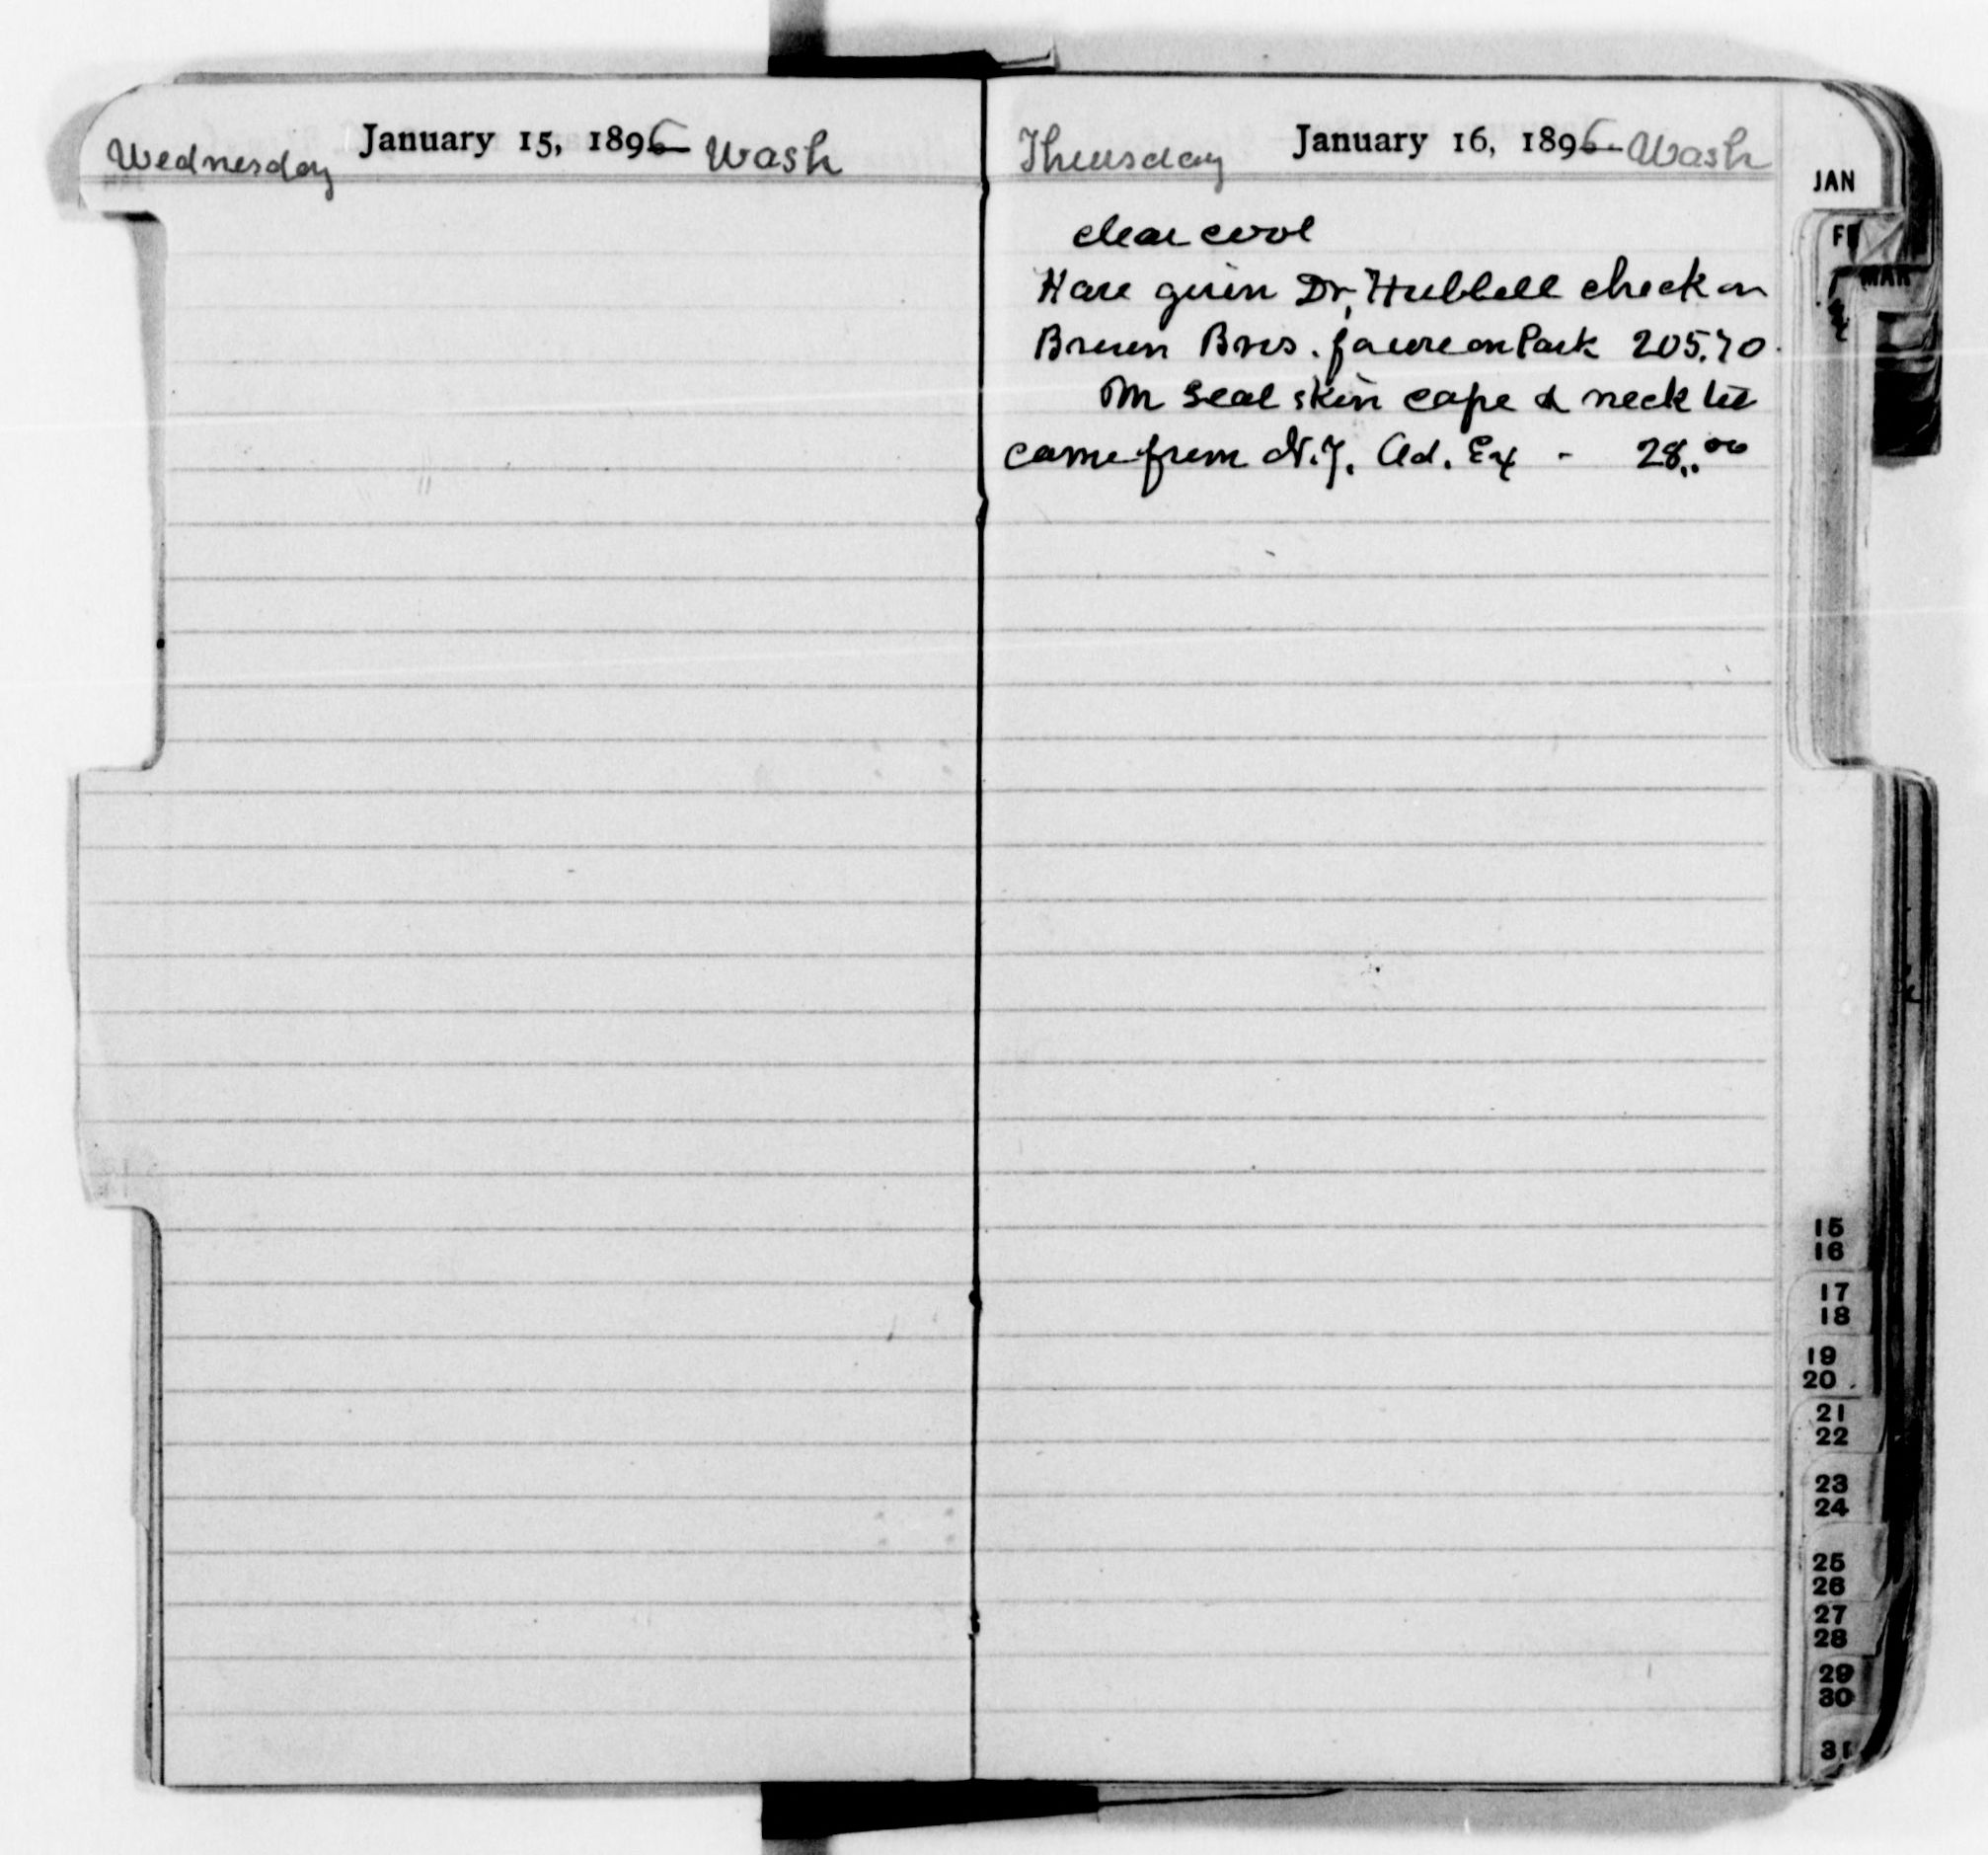 Wednesday January 15, 1896 Wash
Thursday January 16, 1896 Wash
clear cool
Have given Dr. Hubbell check on
Brown Bros. favor on Park 205.70
My seal skin cape & neck tie
came from N.Y. Ad. Ex - 28.00
JAN
MAR
15
16
17
18
19
20
21
22
23
24
25
26
27
28
29
30
31